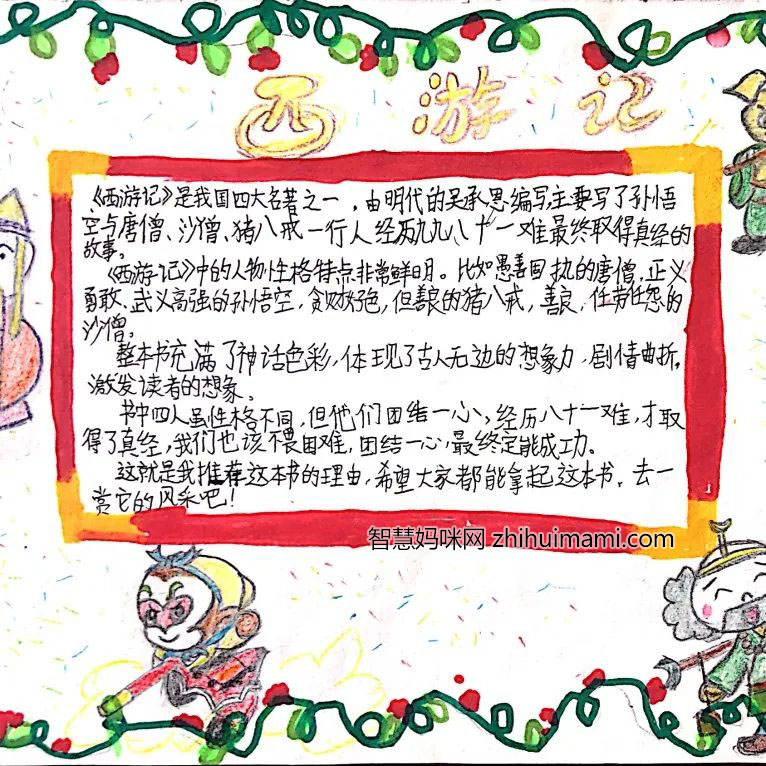 西游记
《西游记》是我国四大名著之一，由明代的吴承恩编写，主要写了孙悟
空与唐僧、沙僧、猪八戒一行人经历九九八十一难最终取得真经的
故事。
《西游记》中的人物性格特点非常鲜明。比如愚善固执的唐僧，正义
勇敢、武义高强的孙悟空，贪财好色，但善良的猪八戒，善良，任劳任怨的
沙僧。
整本书充满了神话色彩，体现了古人无边的想象力，剧情曲折，
激发读者的想象。
书中四人虽性格不同，但他们团结一心，经历八十一难，才取
得了真经，我们也该不畏困难，团结一心，最终定能成功。
这就是我推荐这本书的理由，希望大家都能拿起这本书，去一
赏它的风采吧！
智慧妈咪网 zhihuimami.com